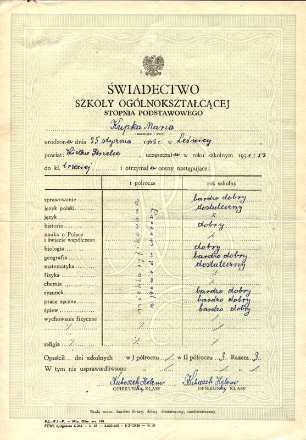 ŚWIADECTWO
SZKOŁY OGÓLNOKSZTAŁCĄCEJ
STOPNIA PODSTAWOWEGO
Krupka Maria
urodzona dnia 25 stycznia w Leśnicy
powiat: Wielkie Strzelce, uczęszczała w roku szkolnym
do kl. trzeciej i otrzymała oceny następujące:
I półrocze rok szkolny
sprawowanie bardzo dobry
język polski dostateczny
język
historia dobry
nauka o Polsce
i świecie współczesnym
biologia dobry
geografia bardzo dobry
matematyka dostateczny
fizyka
chemia
rysunek bardzo dobry
prace ręczne bardzo dobry
śpiew dobry
wychowanie fizyczne
niesklasyfikowana
z powodu choroby
religia
Opuścił dni szkolnych w I półroczu / w II półroczu 3. Razem 3.
W tym nie usprawiedliwiono: / /
OPIEKUN KLASY OPIEKUN KLASY
Skala ocen: bardzo dobry, dobry, dostateczny, niedostateczny.